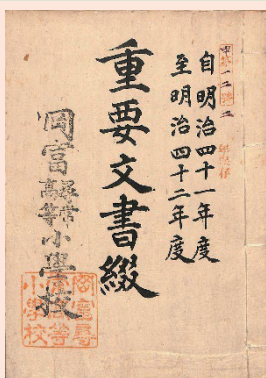 自明治四十一年度
至明治四十二年度
重要文書綴
岡富尋常高等小學校
岡富尋
常高等
小学校